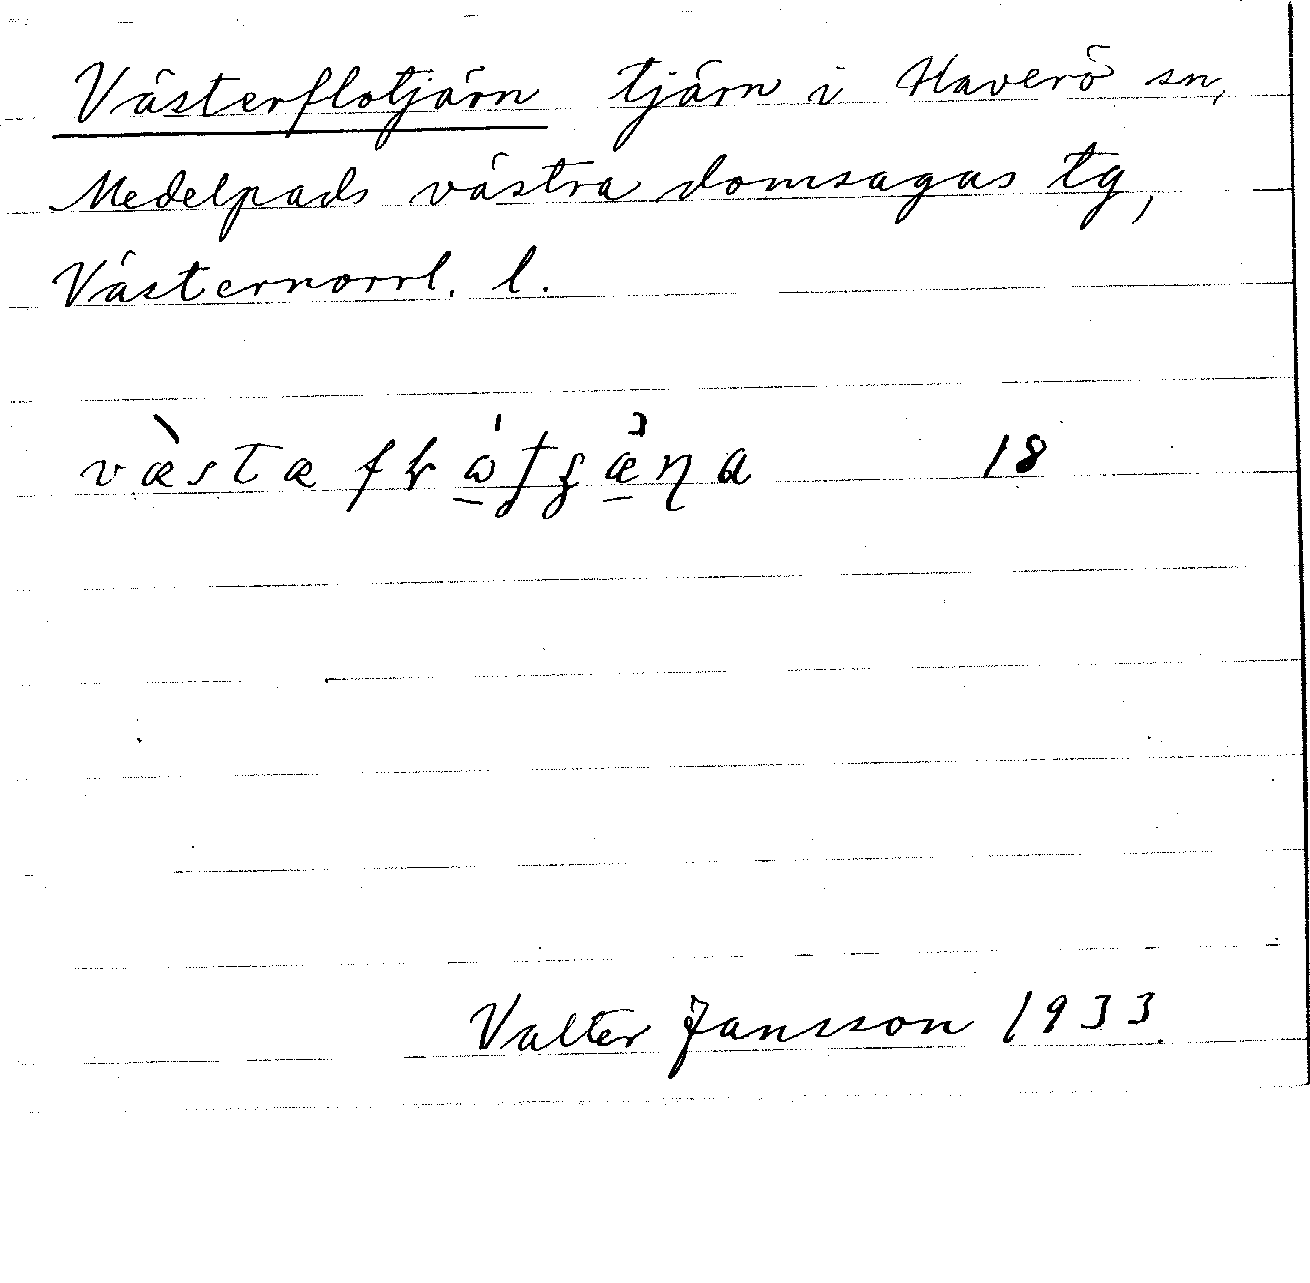 Västerflotjärn tjärn i Haverö sn,
Medelpads västra domsagas tg,
Västernorrl. l.
18
Valter Jansson 1933